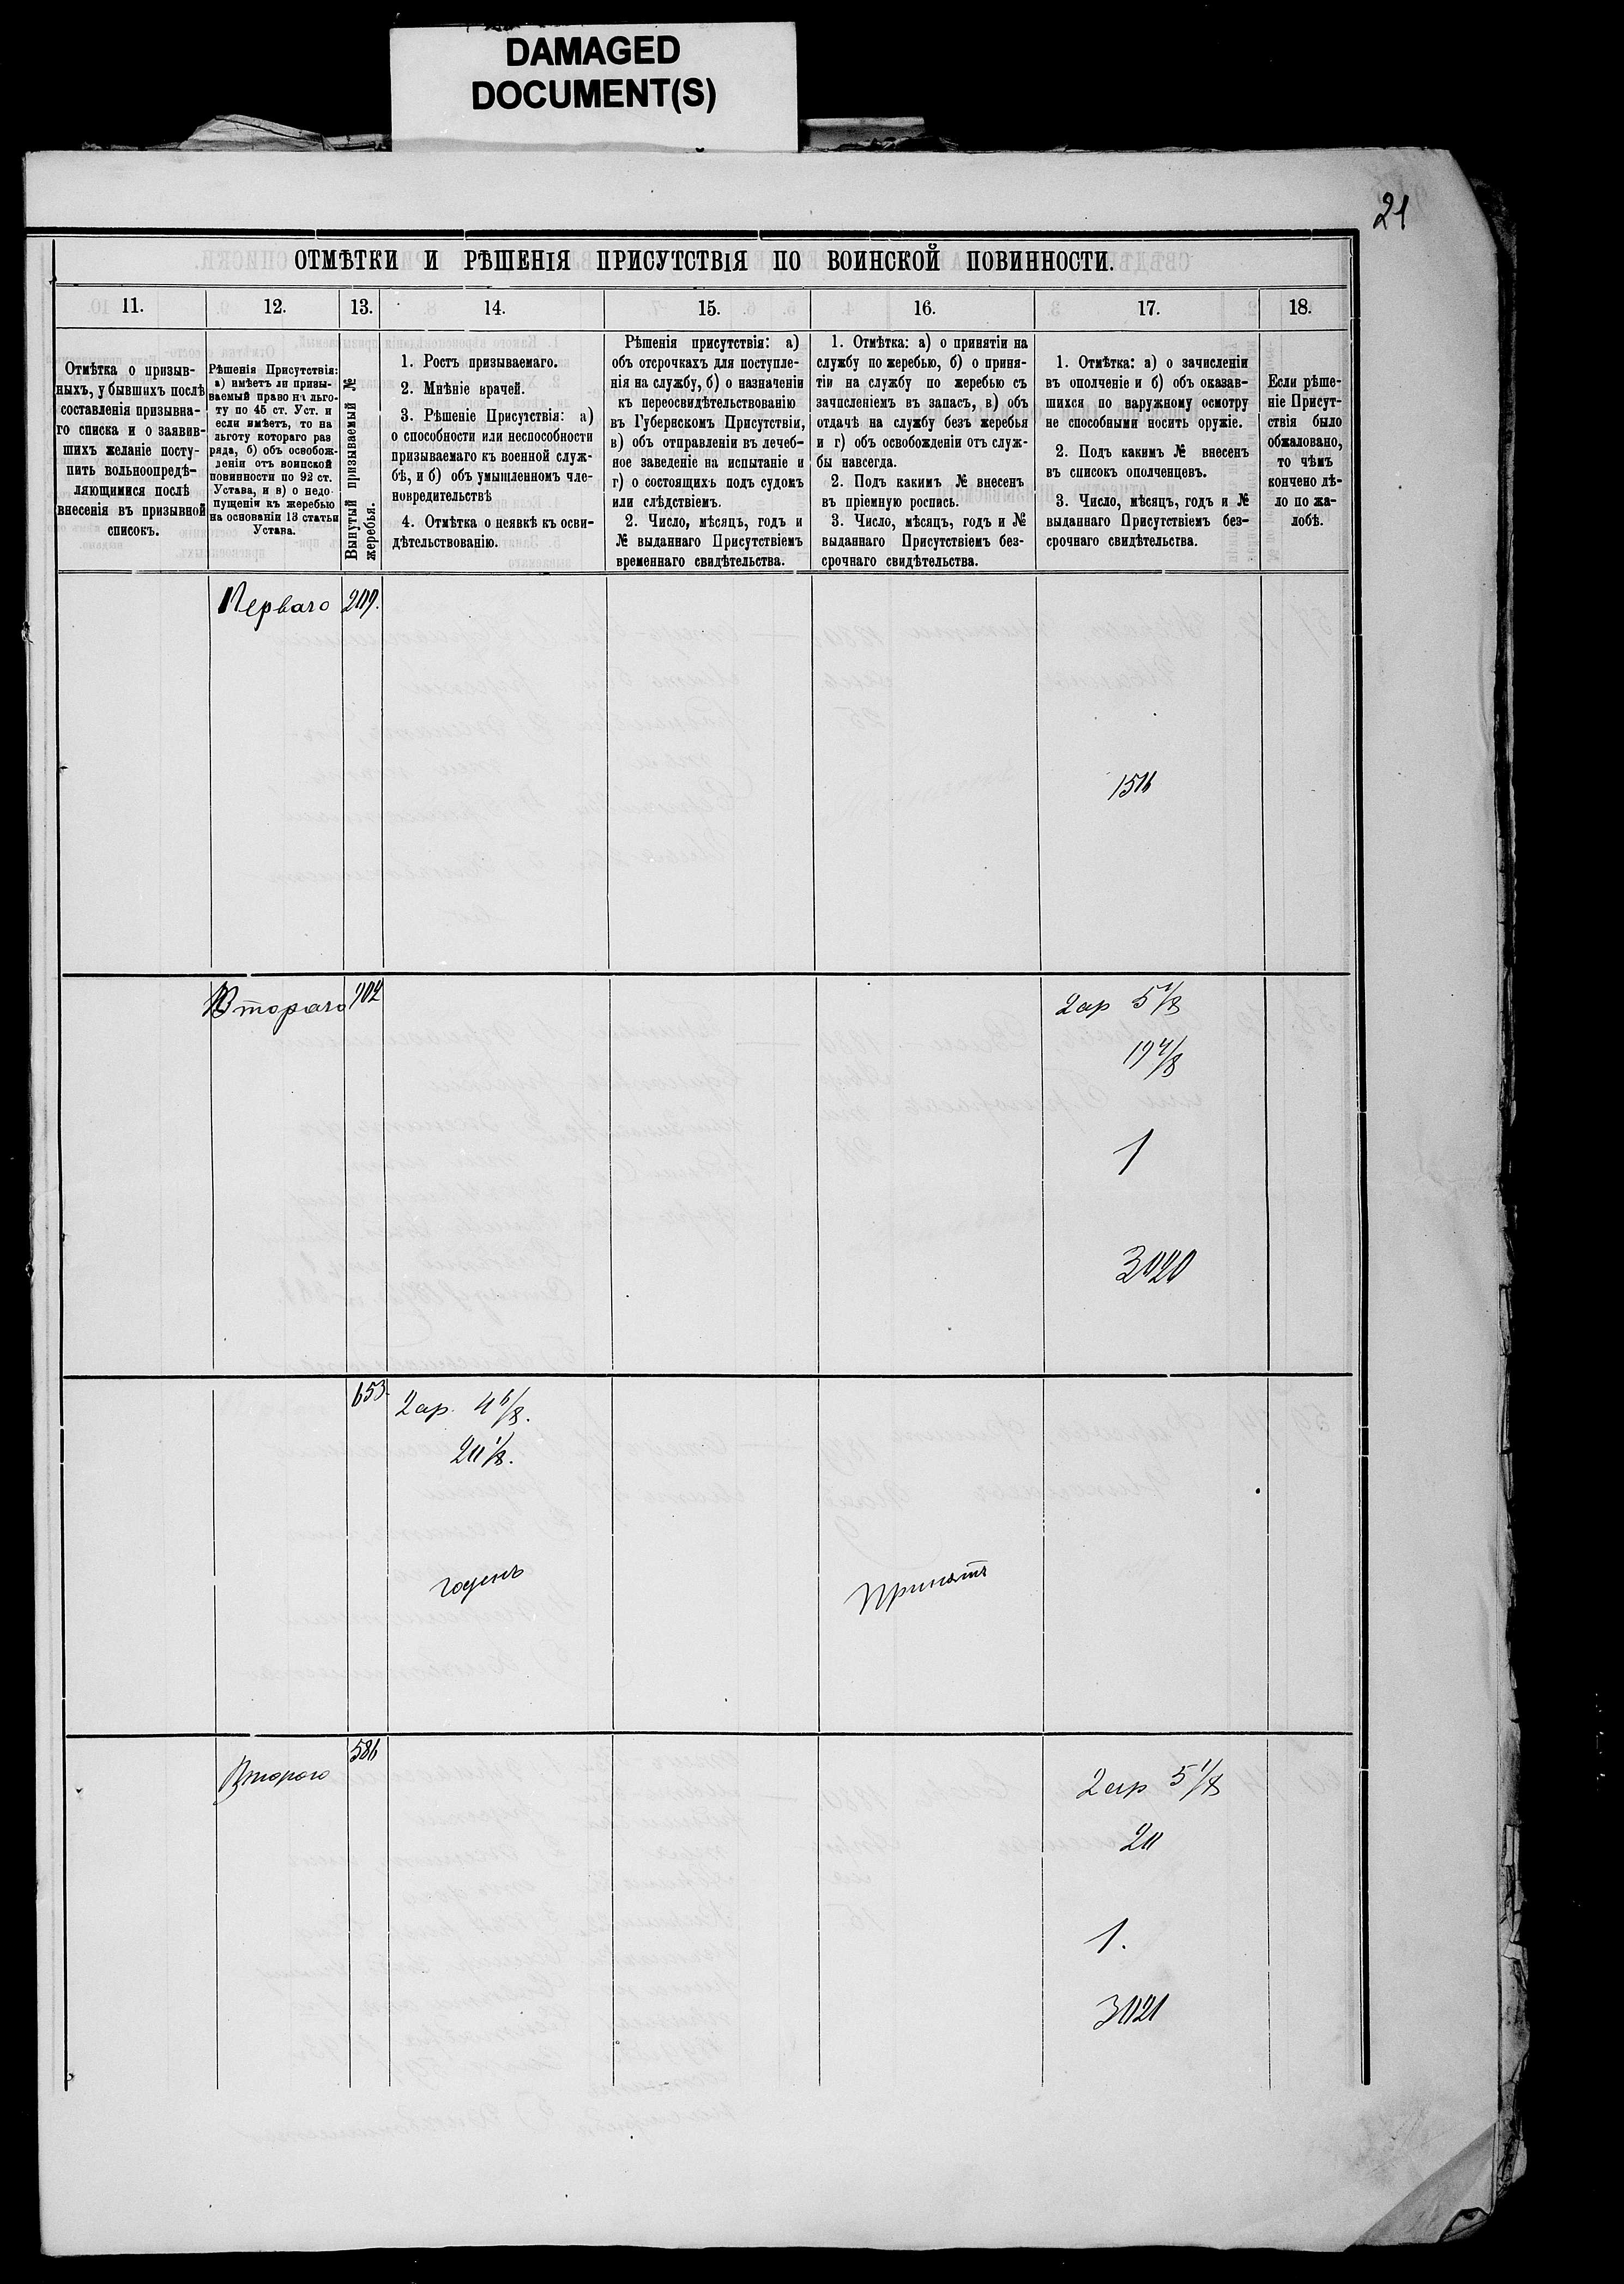 DAMAGED
DOCUMENT(S)
21
ОТМѢТКИ И РѢШЕНІЯ ПРИСУТСТВІЯ ПО ВОИНСКОЙ ПОВИННОСТИ.
11.
12.
13.
14.
15.
16.
17.
18.
Отмѣтка о призыв-
ныхъ, убывшихъ послѣ
составленія призывна-
го списка и о заявив-
шихъ желаніе посту-
пить вольноопредѣ-
ляющимися послѣ
внесенія въ призывной
списокъ.
Рѣшенія Присутствія:
а) имѣетъ ли призы-
ваемый право на льго-
ту по 45 ст. Уст. и
если имѣетъ, то на
льготу котораго раз
ряда, б) объ освобож-
деніи отъ воинской
повинности по 92 ст.
Устава, и в) о недо
пущеніи къ жеребью
на основаніи 13 статьи
Устава.
Вынутый призываемый №
жеребья.
1. Ростъ призываемаго.
2. Мнѣніе врачей.
3. Рѣшеніе Присутствія: а)
о способности или неспособности
призываемаго къ военной служ-
бѣ, и б) объ умышленномъ чле-
новредительствѣ
4. Отмѣтка о неявкѣ къ осви-
дѣтельствованію.
Рѣшенія присутствія: а)
объ отсрочкахъ для поступле-
нія на службу, б) о назначеніи
къ переосвидѣтельствованію
въ Губернскомъ Присутствіи,
в) объ отправленіи въ лечеб-
ное заведеніе на испытаніе и
г) о состоящихъ подъ судомъ
или слѣдствіемъ.
2. Число, мѣсяцъ, годъ и
№ выданнаго Присутствіемъ
временнаго свидѣтельства.
1. Отмѣтка: а) о принятіи на
службу по жеребью, б) о приня-
тіи на службу по жеребью съ
зачисленіемъ въ запасъ, в) объ
отдачѣ на службу безъ жеребья
и г) объ освобожденіи отъ служ-
бы навсегда.
2. Подъ какимъ № внесенъ
въ пріемную роспись.
3. Число, мѣсяцъ, годъ и №
выданнаго Присутствіемъ без-
срочнаго свидѣтельства.
1. Отмѣтка: а) о зачисленіи
въ ополченіе и б) объ оказав-
шихся по наружному осмотру
не способными носить оружіе.
2. Подъ какимъ № внесенъ
въ списокъ ополченцевъ.
3. Число, мѣсяцъ, годъ и №
выданнаго Присутствіемъ без-
срочнаго свидѣтельства.
Если рѣше-
ніе Присут-
ствія было
обжаловано,
то чѣмъ
кончено дѣ-
ло по жа-
лобѣ.
Перваго
209.
1516
Втораго
702
2 ар 5 1/8
19 4/8
1
3020
653
2 ар. 4 6/8.
20 1/8.
годенъ
Принятъ
Второго
586
2 ар 5 1/8
20
1.
3021